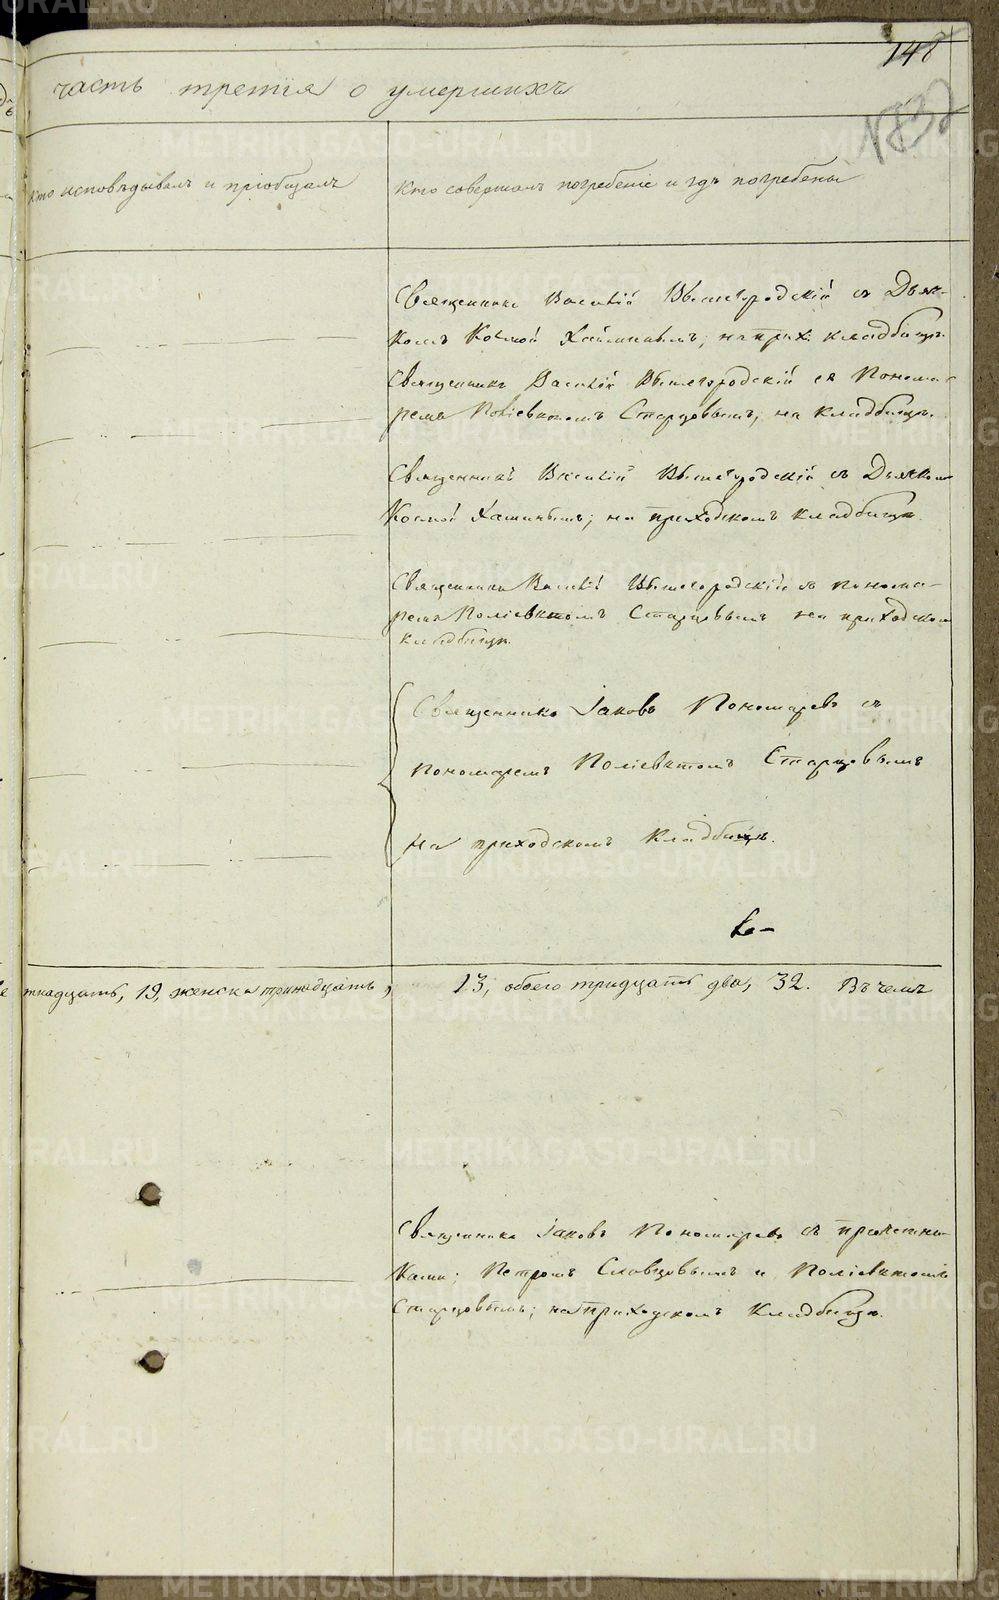 148
часть третія о умершихъ
132
кто исповѣдывалъ и пріобщалъ
кто совершалъ погребеніе и гдѣ погребены
Священникъ Василій Вышегородскій съ Дьяч-
комъ Космой Хаминымъ; на прих. кладбищѣ.
Священникъ Василій Вышегородскій съ Понома-
ремъ Поліевктомъ Старцовымъ, на кладбищѣ.
Священникъ Василій Вышегородскій съ Дьячкомъ
Космой Хаминымъ; на приходскомъ кладбищѣ
Священникъ Василій Вышегородскій съ понома-
ремъ Поліевктомъ Старцовымъ на приходскомъ
кладбищѣ.
Священникъ Іаковъ Пономаревъ съ
пономаремъ Поліевктомъ Старцовымъ
на приходскомъ кладбищѣ.
тнадцать, 19, женска тринадцать, 13, обоего тридцать два, 32. Въ чемъ
Священникъ Іаковъ Пономаревъ съ причетни-
ками; Петромъ Словцовымъ и Поліевктомъ
Старцовымъ; на приходскомъ кладбищѣ.
METRIKI.GASO-URAL.RU